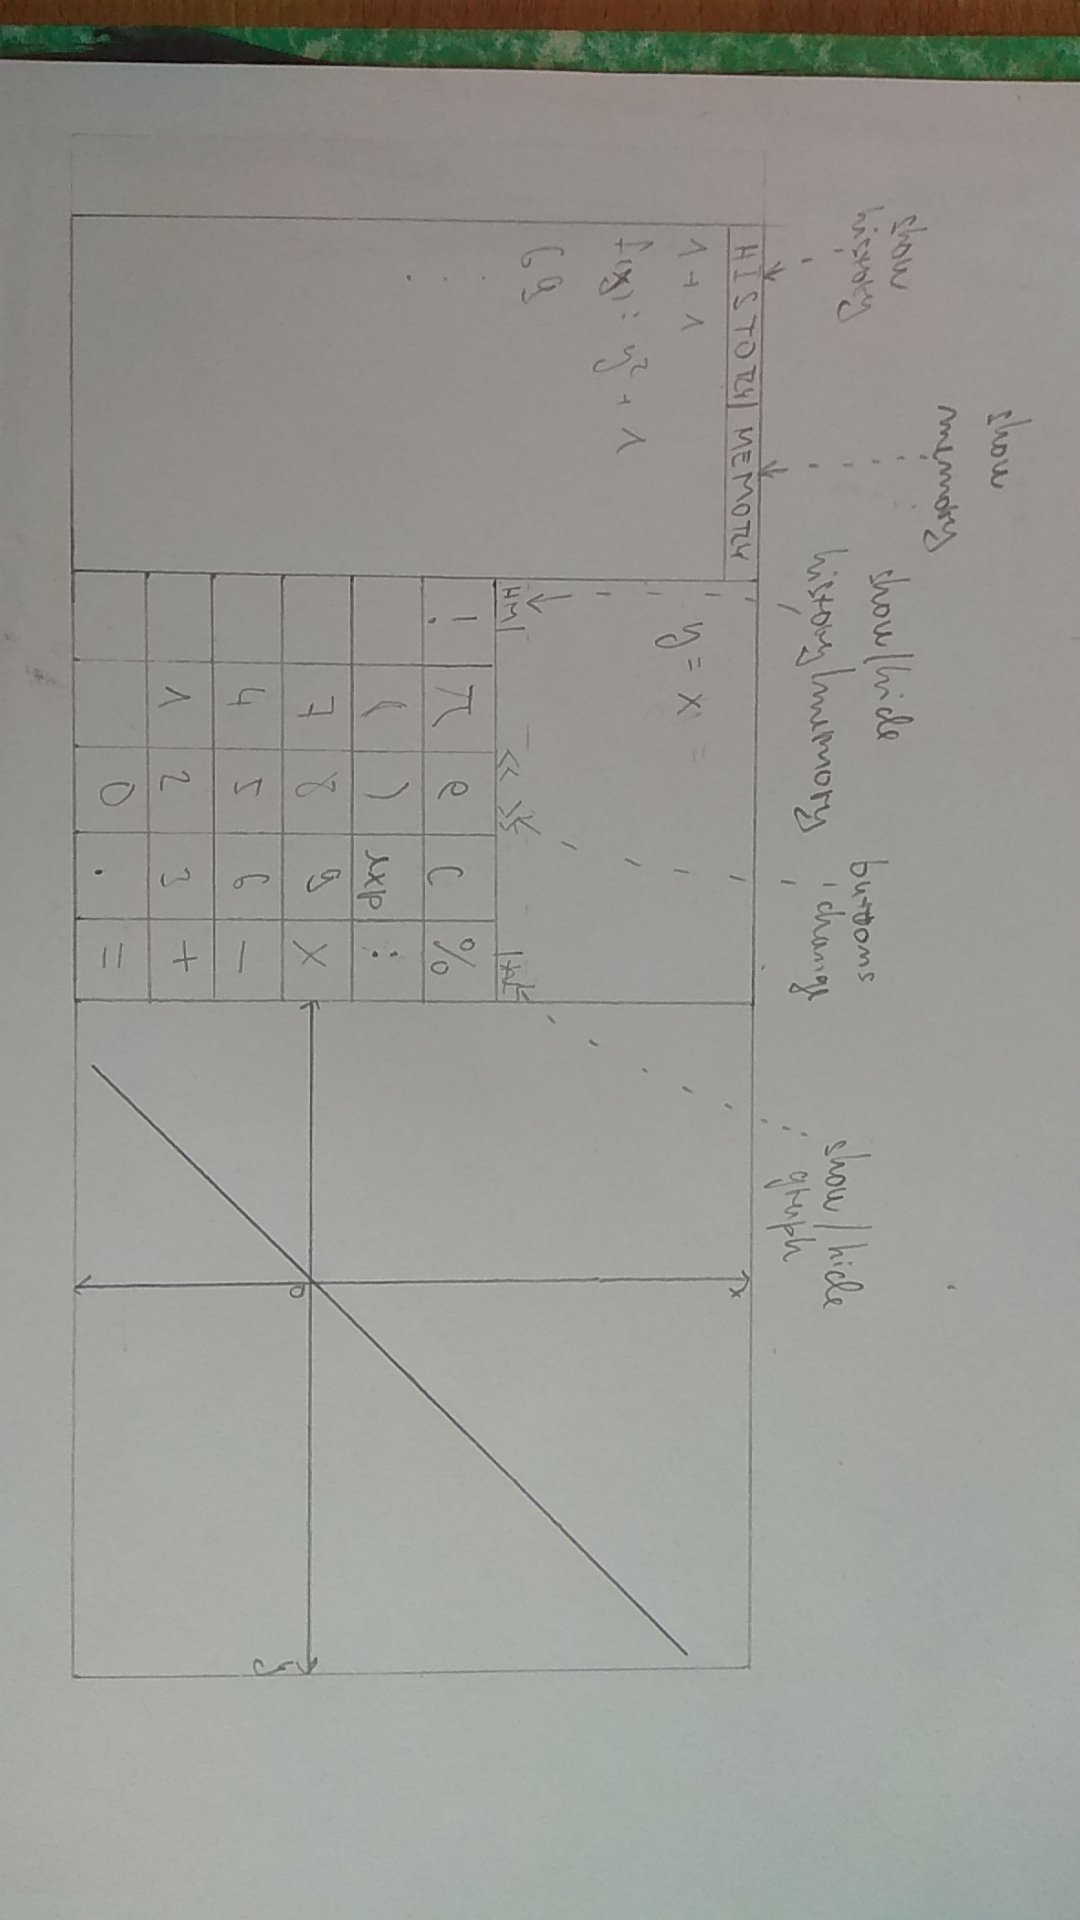 show
history
show
memory
show/hide
history/memory
buttons
change
show/hide
graph
HISTORY | MEMORY
1 + 1
f(x): y² + 1
69
y = x =
HM
<< >>
! π e C %
( ) exp :
7 8 9 x
4 5 6 -
1 2 3 +
0 . =
x
0
y